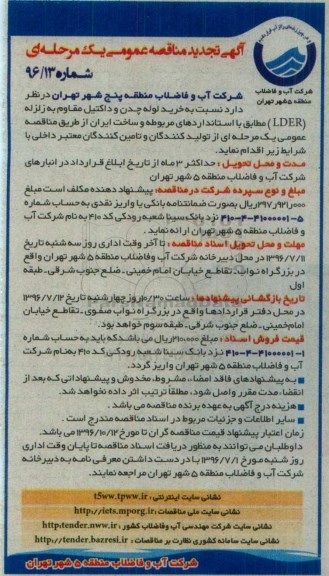 آگهی تجدید مناقصه عمومی یک مرحله‌ای
شماره ۹۶/۱۳
شرکت آب و فاضلاب
منطقه ۵ شهر تهران
شرکت آب و فاضلاب منطقه پنج شهر تهران در نظر
دارد نسبت به خرید لوله چدن و داکتیل مقاوم به زلزله
(LDER) مطابق با استانداردهای مربوطه و ساخت ایران از طریق مناقصه
عمومی یک مرحله ای از تولید کنندگان و تامین کنندگان معتبر داخلی با
شرایط زیر اقدام نماید.
مدت و محل تحویل : حداکثر ۳ ماه از تاریخ ابلاغ قرارداد در انبارهای
شرکت آب و فاضلاب منطقه ۵ شهر تهران
مبلغ و نوع سپرده شرکت در مناقصه: پیشنهاد دهنده مکلف است مبلغ
ریال بصورت ضمانتنامه بانکی یا واریز نقدی به حساب شماره
۵-۴۱۰۰۰۰۱-۴-۴۱۰ نزد بانک سینا شعبه رودکی کد ۴۱۰ به نام شرکت آب
و فاضلاب منطقه ۵ شهر تهران ارائه نماید.
مهلت و محل تحویل اسناد مناقصه : تا آخر وقت اداری روز سه شنبه تاریخ
۱۳۹۶/۷/۱۱ در محل دبیرخانه شرکت آب وفاضلاب منطقه ۵ شهر تهران واقع
در بزرگراه نواب ـ تقاطع خیابان امام خمینی ـ ضلع جنوب شرقی ـ طبقه
اول
تاریخ بازگشائی پیشنهادها : ساعت ۱۰/۳۰ روز چهارشنبه تاریخ ۱۳۹۶/۷/۱۲
در محل دفتر قراردادها واقع در بزرگراه نواب صفوی ـ تقاطع خیابان
امام‌خمینی ـ ضلع جنوب شرقی ـ طبقه سوم خواهد بود.
قیمت فروش اسناد : مبلغ ریال می باشد که باید به حساب شماره
۱-۴۱۰۰۰۰۱-۴-۴۱۰ نزد بانک سینا شعبه رودکی کد ۴۱۰ به‌نام شرکت
آب و فاضلاب منطقه ۵ شهر تهران واریز گردد.
به پیشنهادهای فاقد امضاء، مشروط، مخدوش و پیشنهاداتی که بعد از
انقضاء مدت مقرر واصل شود، مطلقا ترتیب اثر داده نخواهد شد.
هزینه درج آگهی به عهده برنده مناقصه می باشد .
سایر اطلاعات و جزئیات مربوط در اسناد مناقصه مندرج است .
زمان اعتبار پیشنهاد قیمت مناقصه گران تا مورخ ۱۳۹۶/۱۰/۱۲ می باشد.
داوطلبان می توانند به منظور دریافت اسناد مناقصه تا پایان وقت اداری
روز شنبه مورخ ۱۳۹۶/۷/۱ با در دست داشتن معرفی نامه به دبیرخانه
شرکت آب و فاضلاب منطقه ۵ شهر تهران مراجعه نمایند.
نشانی سایت اینترنتی : t5ww.tpww.ir
نشانی سایت ملی مناقصات : http://iets.mporg.ir
نشانی سایت شرکت مهندسی آب وفاضلاب کشور : http:tender.nww.ir
نشانی سایت سامانه کشوری نظارت بر مناقصات : http://tender.bazresi.ir
شرکت آب و فاضلاب منطقه ۵ شهر تهران